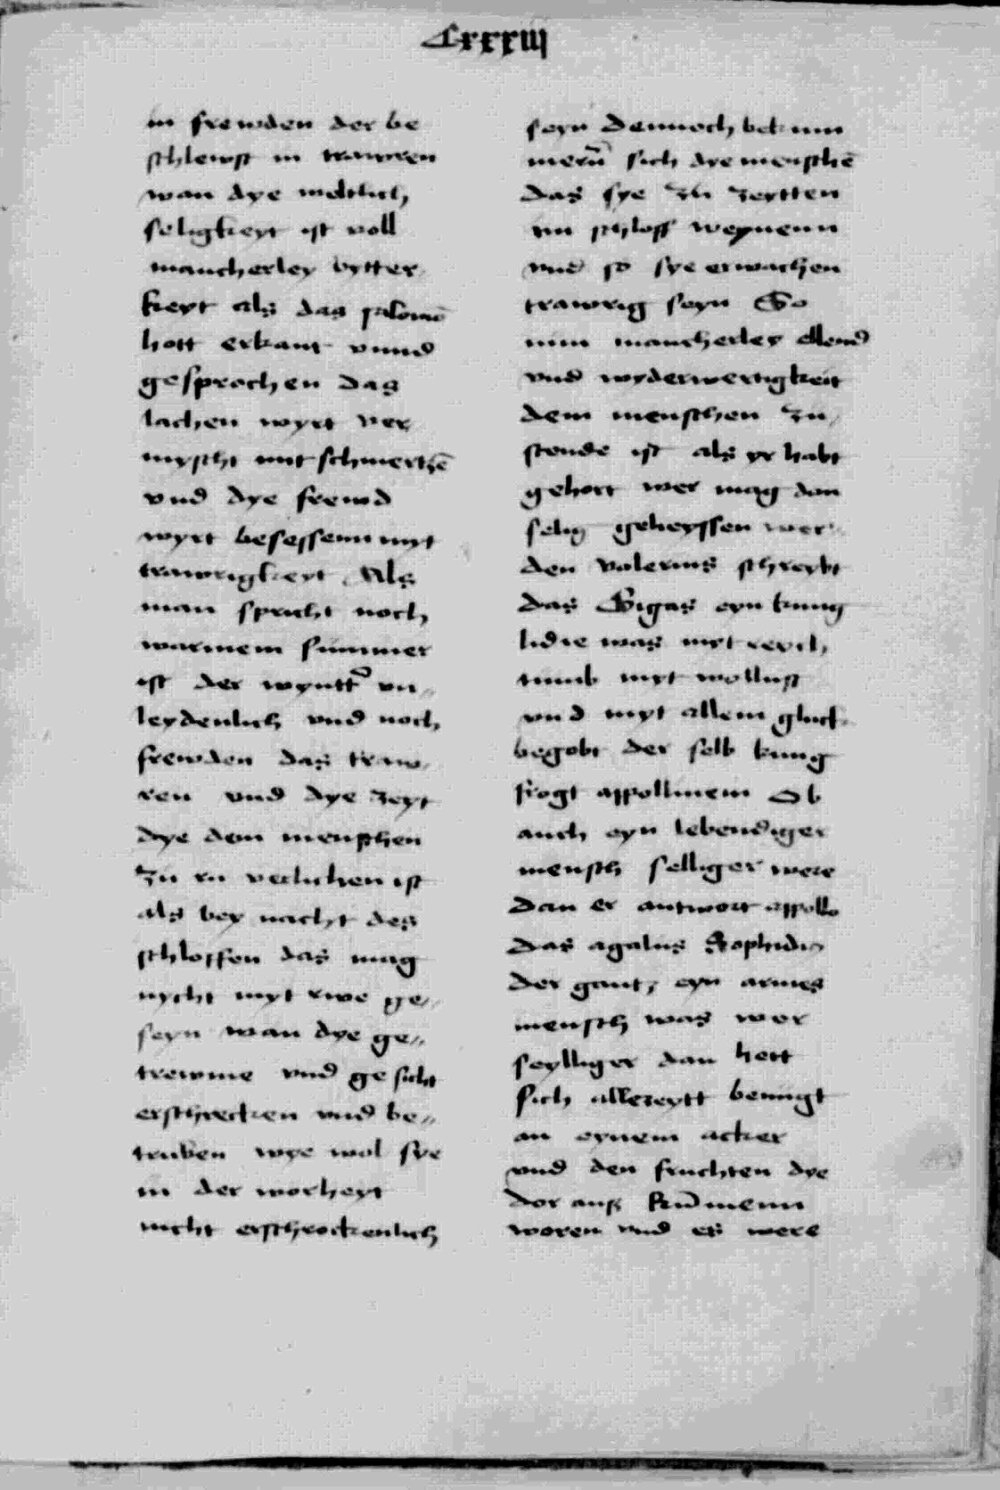 Cxxxiii
in frewden der be
schlewst in trawren
wan dye weltlich
seligkeyt ist voll
mancherley bytter
keyt als das salomō
hott erkant vnnd
gesprochen das
lachen wyrt ver
myscht mit schmertzē
vnd dye frewd
wyrt besessenn myt
trawrigkeyt Als
man spricht noch
warmem summer
ist der wyntt͛ vn„
leydenlich vnd noch
frewden das traw„
ren vnd dye zeyt
dye dem menschen
zu ru verlichen ist
als bey nacht des
schloffen das mag
nycht myt rwe ge„
seyn wan dye ge„
trewme vnd gesicht
erschrecken vnd be„
truben wye wol sye
in der worheyt
nicht erschrockenlich
seyn dennoch bekum
mern̄ sich dye menschē
das sye zu zeytten
im schloff weynenn
vnd so sye erwachen
trawrig seyn So
nun mancherley ellend
vnd wyderwertigkeit
dem menschen zu„
stende ist als yr habt
gehort wer mag dan
selig geheyssen wer„
den valerius schreybt
das Gigas eyn kunig
lidie was myt reych„
tumb myt wollust
vnd myt allem gluck
begobt der selb kunig
frogt appollinem Ob
auch eyn lebendiger
mensch selliger were
dan er antwort appollo
das agalius Sophidius
der gantz eyn armes
mensch was wer
seylliger dan hett
sich allezeytt benugt
an eynem acker
vnd den fruchten dye
dor aus kum̄menn
woren vnd es were